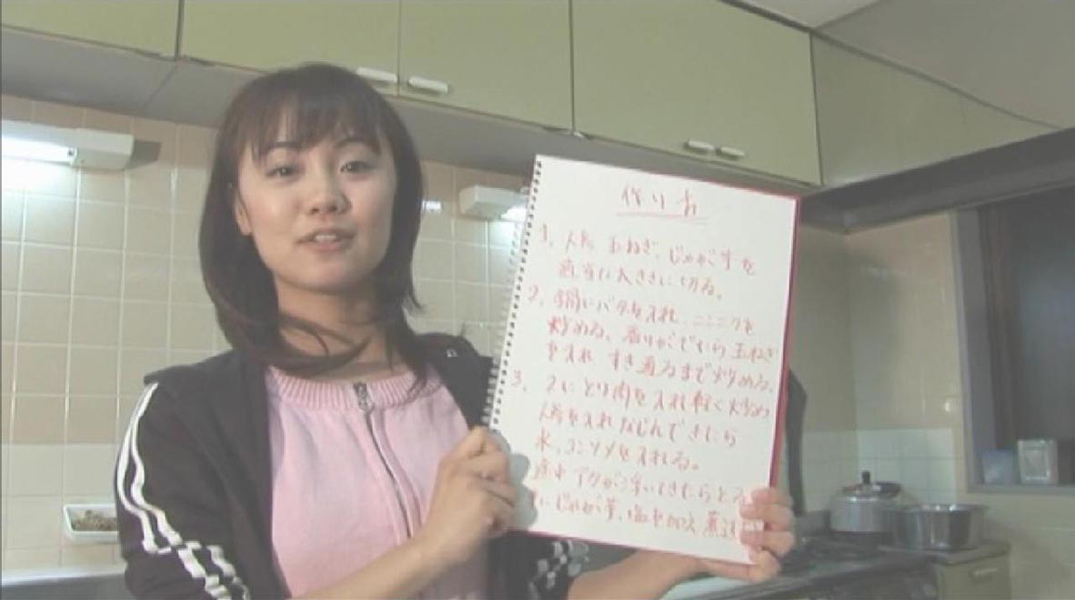 作り方
1. 人参 玉ねぎ、じゃが芋を
適当に大きさに切る。
2. 鍋にバターを入れ、ニンニクを
炒める。香りがでたら玉ねぎ
を入れ すき通るまで炒める。
3. 2にとり肉を入れ軽く炒め
人参を入れなじんできたら
水、コンソメを入れる。
途中アクが浮いてきたらとる
にじゃが芋、塩を加え 煮込